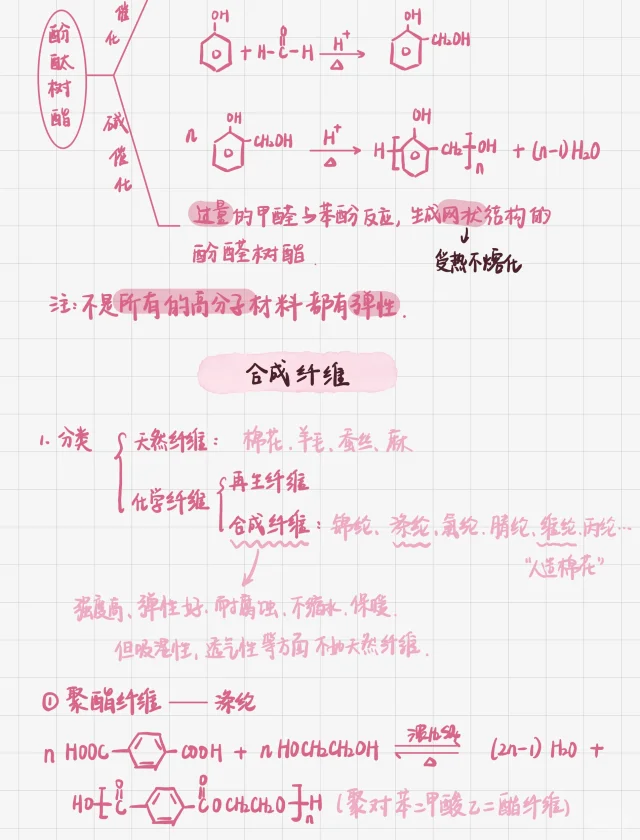 酚酞树酯
催化
OH + H-C(=O)-H H⁺ △ → OH CH₂OH
碱催化
n OH CH₂OH H⁺ △ → H-[ OH CH₂ ]n OH + (n-1)H₂O
过量的甲醛与苯酚反应,生成网状结构的
酚醛树酯.
↓
受热不熔化
注:不是所有的高分子材料都有弹性.
合成纤维
1. 分类 { 天然纤维: 棉花、羊毛、蚕丝、麻
化学纤维 { 再生纤维
合成纤维: 锦纶、涤纶、氯纶、腈纶、维纶、丙纶…
"人造棉花"
强度高、弹性好、耐腐蚀、不缩水、保暖.
但吸湿性、透气性等方面不如天然纤维.
① 聚酯纤维 —— 涤纶
n HOOC- -COOH + n HOCH₂CH₂OH 浓H₂SO₄ △ ⇌ (2n-1) H₂O +
HO-[ C(=O)- -C(=O) OCH₂CH₂O ]n H (聚对苯二甲酸乙二酯纤维)